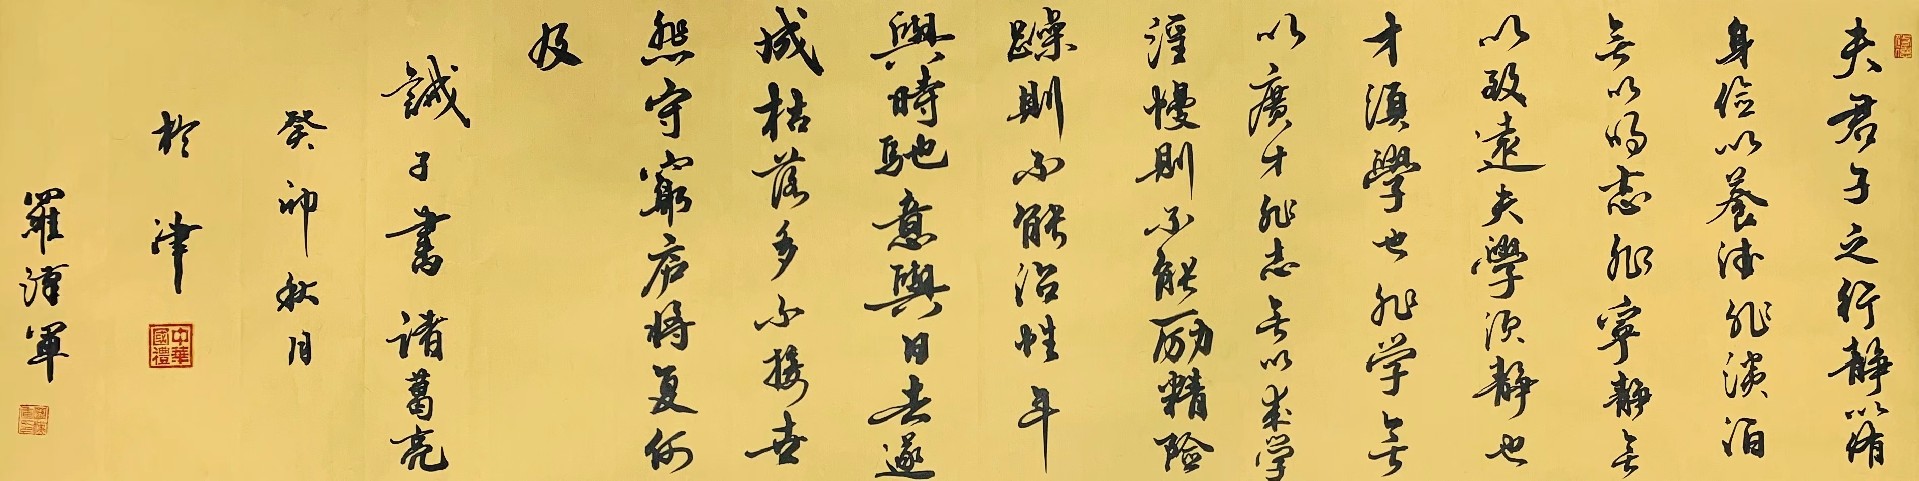 夫君子之行静以修
身俭以養德非淡泊
無以明志非寧静無
以致遠夫學須静也
才須學也非学無
以廣才非志無以成学
淫慢則不能励精險
躁則不能治性年
與時馳意與日去遂
成枯落多不接世
悲守窮廬將复何
及
誡子書 諸葛亮
癸卯秋月
於津
中華
國禮
羅 軍